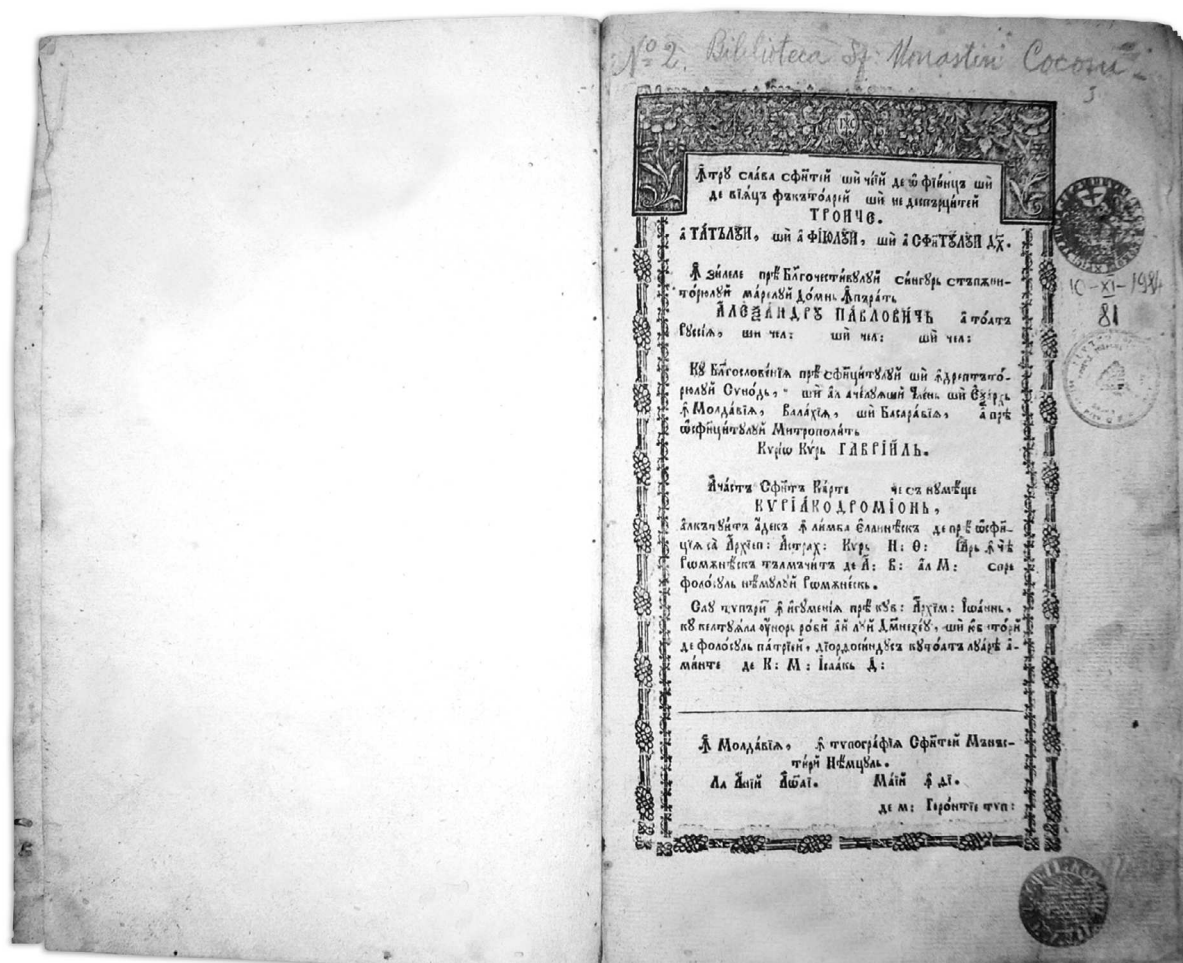 Nº 2. Biblioteca Sf: Monastiri Cocosu
Ꙟтрꙋ сла́ва сфи́нтей шѝ чѐїй де ѡ҆ фїи́нцъ шѝ
де вїа́цъ фъкъто́арей шѝ недеспърци́тей
ТРОИЧЕ.
а҆ ТА́ТЪЛꙊЙ, шѝ а҆ ФІ́ЮЛꙊЙ, шѝ а҆ СФИ́НТꙊЛꙊЙ ДХ҃.
Ꙟ зи́леле прѣ́ Бл҃гочести́вꙋлꙋй си́нгꙋрь стъпѫни-
то́рюлꙋй ма́релꙋй До́мнь Ꙟпъра́ть
АЛЕѮА́НДРꙊ ПА́ВЛОВИЧЬ а҆ то́атъ
Рꙋссїѧ, шѝ чел: шѝ чел: шѝ чел:
Кꙋ Бл҃гослове́нїѧ прѣ́ сфинци́тꙋлꙋй шѝ ꙟдрептъто́-
рюлꙋй Сѵно́дь, шѝ а҆л ачелꙋѧшѝ Чле́нь шѝ Е҆ѯа́рхь
ꙟ Молда́вїѧ, Вала́хїѧ, шѝ Басара́вїѧ, а҆ прѣ
ѡ҆сфинци́тꙋлꙋй Митрополи́ть
Кѵрїѡ Кѵ́рь ГАВРІИ́ЛЬ.
Ача́стъ Сфи́нтъ Ка́рте че съ нꙋмѣ́ще
КѴРІАКОДРОМІО́НЬ,
а҆лкътꙋи́тъ а҆декъ ꙟ ли́мба Е҆ллинѣ́скъ де прѣ ѡ҆сфин-
ці́ѧ са̀ А҆рхїеп: А҆страх: Кѵрь Н: Ѳ: Ꙗ҆рь ꙟ чѣ̀
Рꙋмѫнѣ́скъ тълмъчи́тъ де А҆: В: а҆л М: спре
фоло́сꙋль нѣ́мꙋлꙋй Рꙋмѫне́скь.
Саꙋ тѵпъри́т ꙟ и҆гꙋмені́ѧ прѣ кꙋв: А҆рхїм: І҆ѡа́ннь,
кꙋ келтꙋѧ́ла ᲂу҆но́рь ро́бй аѝ лꙋй Дꙋмнезе́ꙋ, шѝ юби́торй
де фоло́сꙋль па́трїей, дїордоси́ндꙋсъ кꙋ то́атъ лꙋа́рѣ а-
ми́нте де К: М: І҆саа́кь Д:
Ꙟ Молда́вїѧ, ꙟ тѵпогра́фїѧ Сфи́нтей Мънъс-
ти́рй Нѣ́мцꙋль.
Ла А҆нїй ҂аѡаі. Ма́ій ꙟ ді.
де м: Геро́нтїе тѵп:
10-XI-1984
81